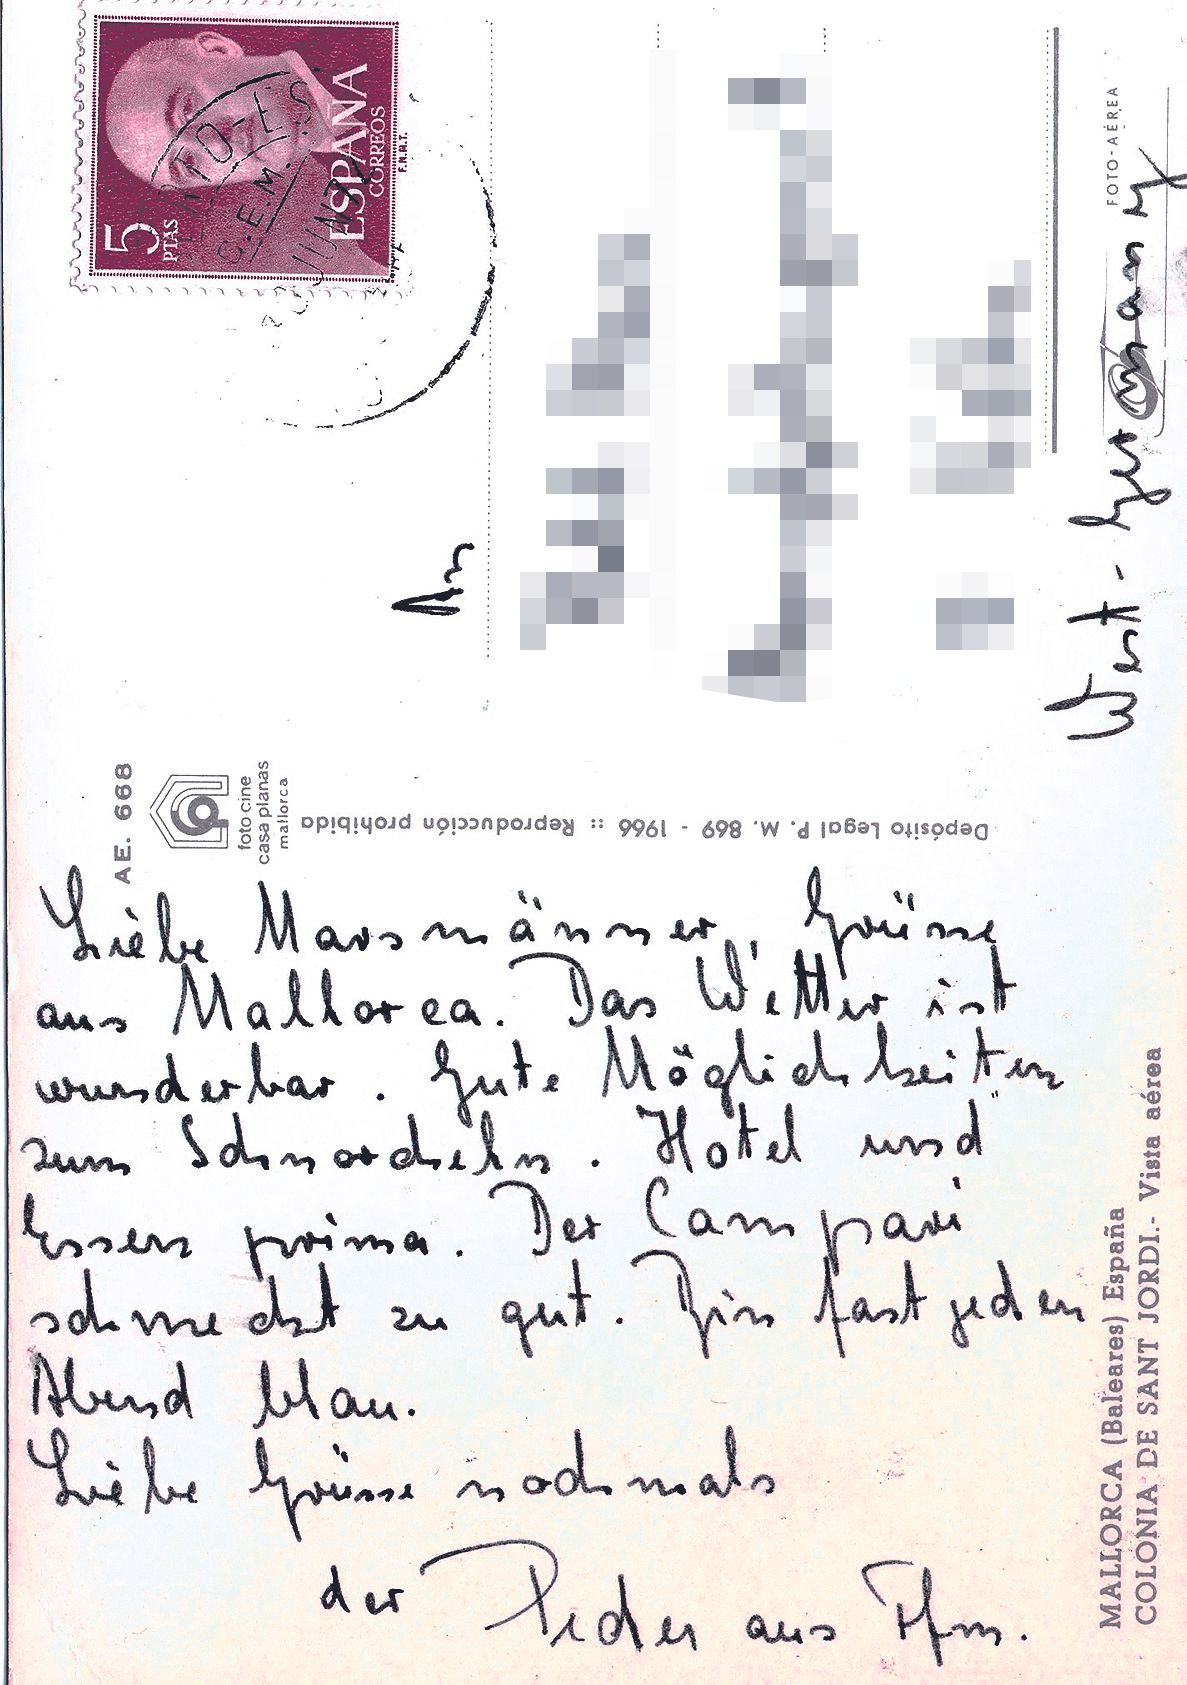 ESPAÑA
CORREOS
5 PTAS
F.N.M.T.
An
West-Germany
FOTO-AÉREA
AE. 668
foto cine
casa planas
mallorca
Depósito Legal P. M. 869 - 1966 :: Reproducción prohibida
Liebe Marsmänner, Grüsse
aus Mallorca. Das Wetter ist
wunderbar. Gute Möglichkeiten
zum Schnorcheln. Hotel und
Essen prima. Der Campari
schmeckt zu gut. Bin fast jeden
Abend blau.
Liebe Grüsse nochmals
der aus Ffm.
MALLORCA (Baleares) España
COLONIA DE SANT JORDI.- Vista aérea